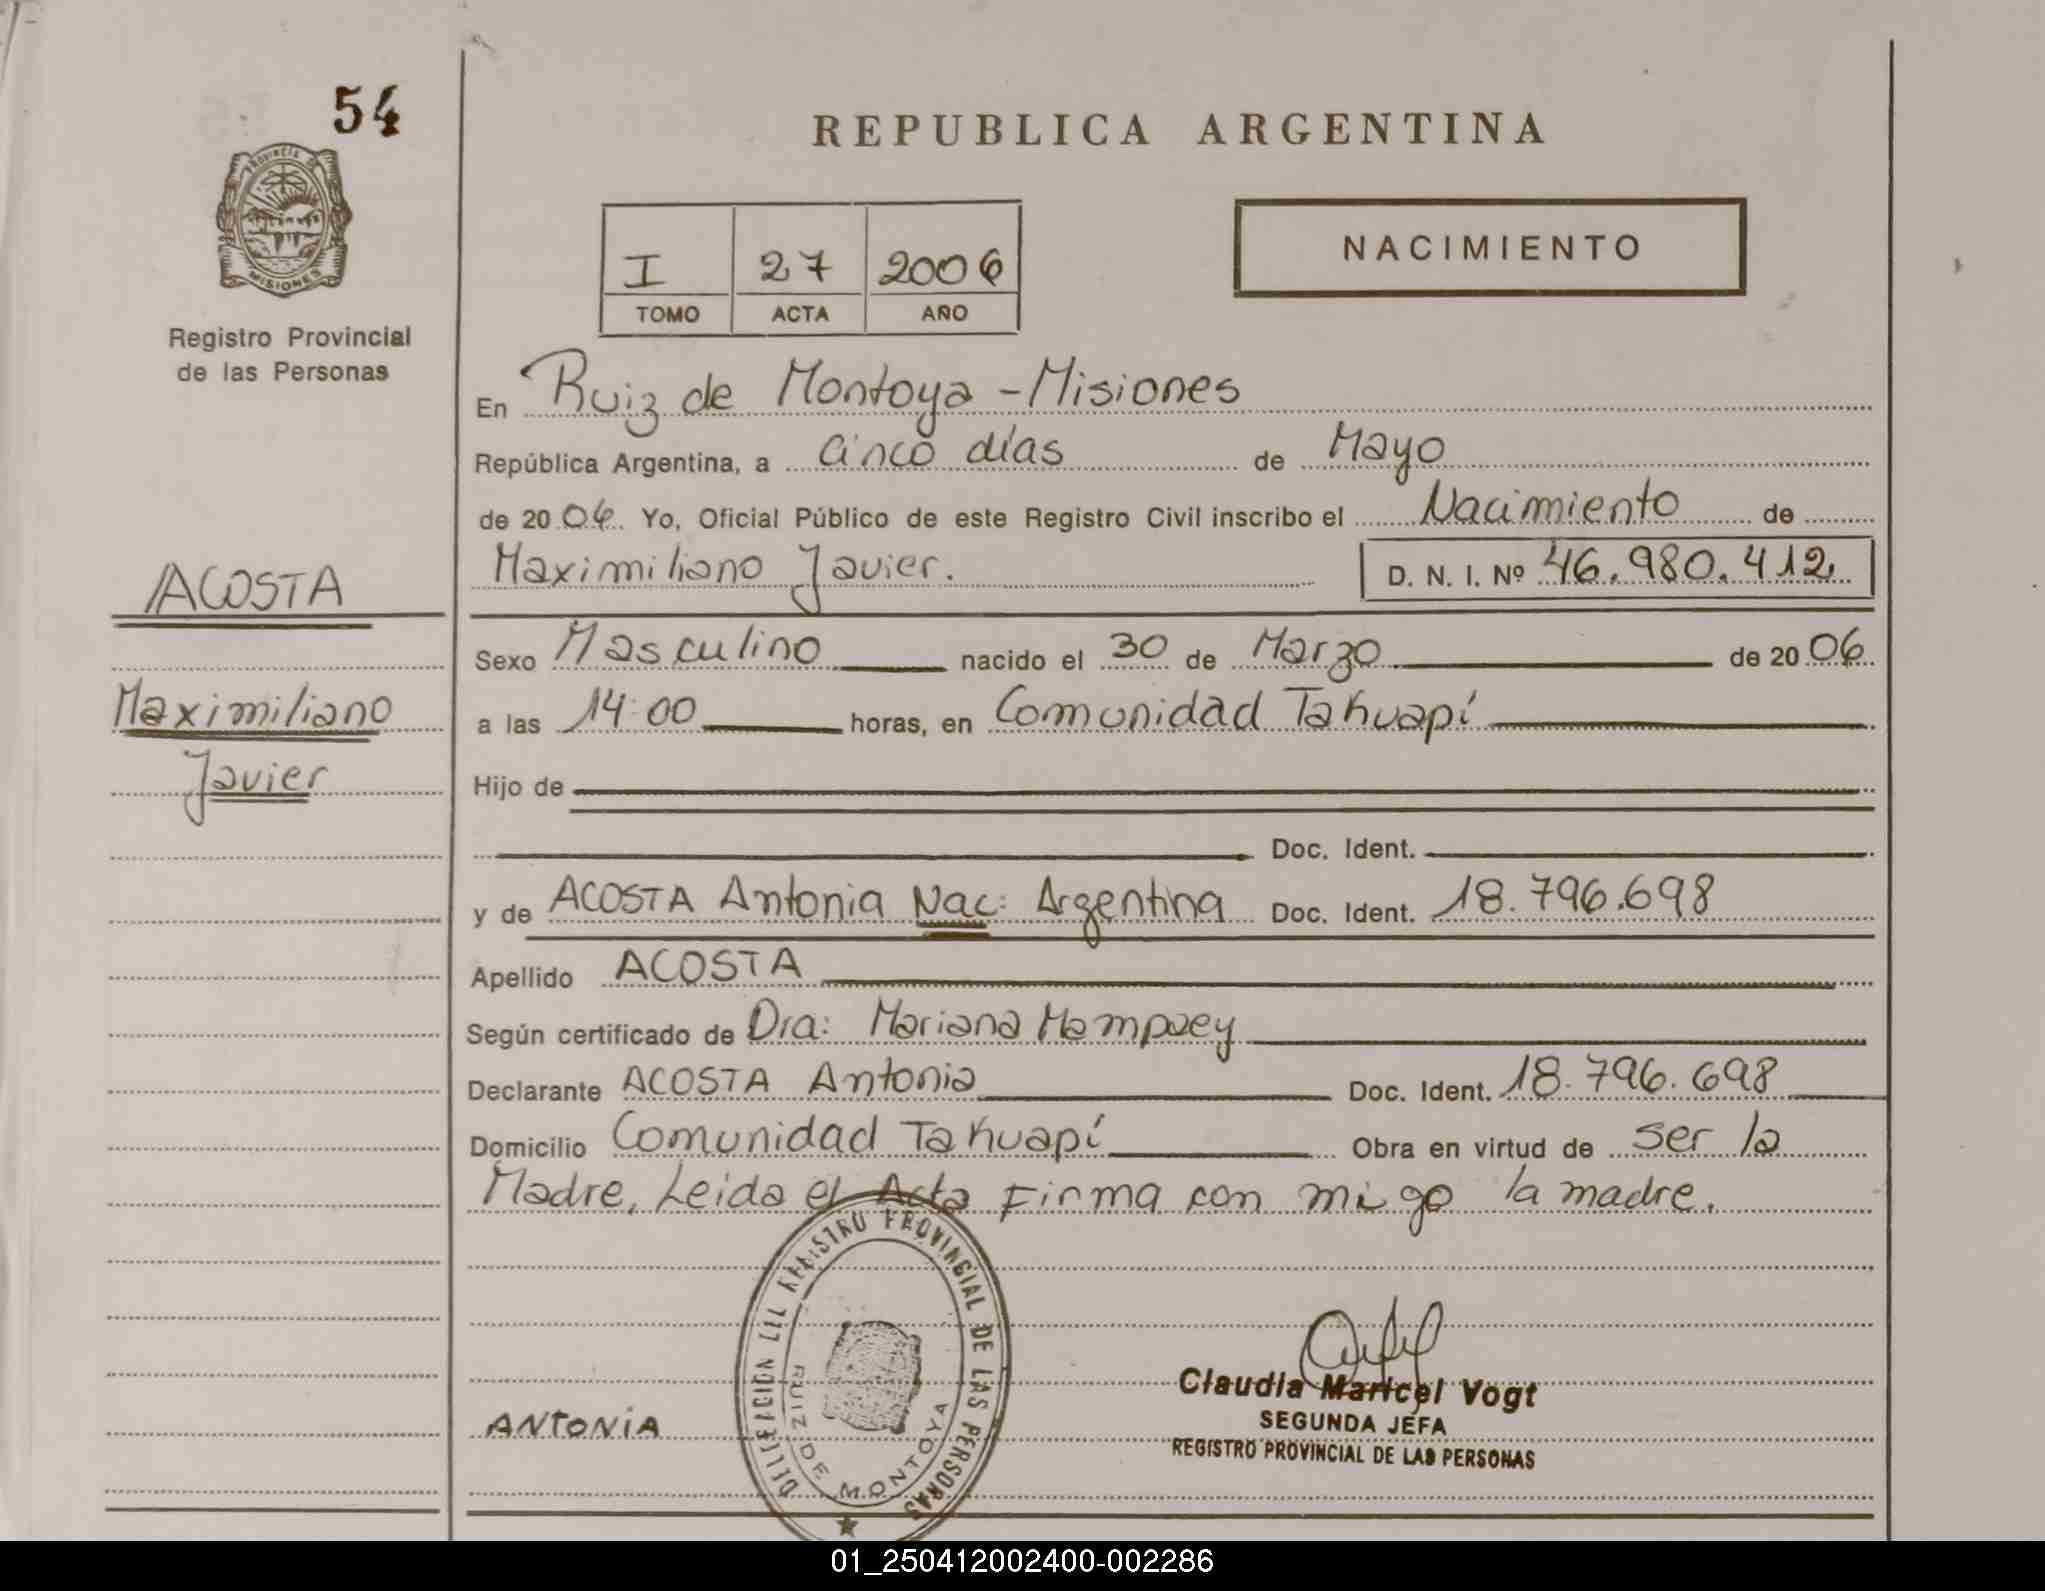 54
PROVINCIA DE
MISIONES
Registro Provincial
de las Personas
ACOSTA
Maximiliano
Javier
REPUBLICA ARGENTINA
I 27 2006
TOMO ACTA AÑO
NACIMIENTO
En Ruiz de Montoya - Misiones
República Argentina, a cinco días de Mayo
de 20 06. Yo, Oficial Público de este Registro Civil inscribo el Nacimiento de
Maximiliano Javier. D. N. I. Nº 46.980.412
Sexo Masculino nacido el 30 de Marzo de 20 06
a las 14:00 horas, en Comunidad Takuapí
Hijo de
Doc. Ident.
y de ACOSTA Antonia Nac: Argentina Doc. Ident. 18.796.698
Apellido ACOSTA
Según certificado de Dra: Mariana
Declarante ACOSTA Antonia Doc. Ident. 18.796.698
Domicilio Comunidad Takuapí Obra en virtud de ser la
Madre, Leida el Acta Firma con migo la madre.
DELEGACION DEL REGISTRO PROVINCIAL DE LAS PERSONAS
RUIZ DE MONTOYA
ANTONiA
Claudia Maricel Vogt
SEGUNDA JEFA
REGISTRO PROVINCIAL DE LAS PERSONAS
01_250412002400-002286